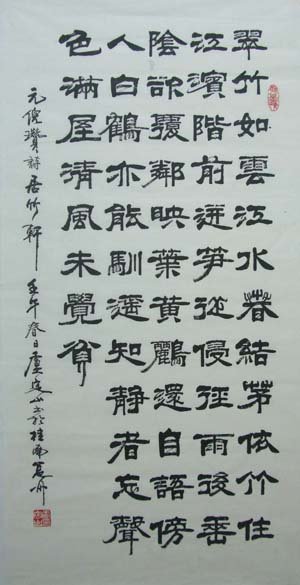 翠竹如雲江水春結茅依竹住
江濱階前迸笋從侵徑雨後垂
陰欲覆鄰映葉黃鸝還自語傍
人白鶴亦能馴遥知静者忘聲
色滿屋清風未覺貧
元倪瓚詩居竹軒 壬午春日盧定山書於桂南